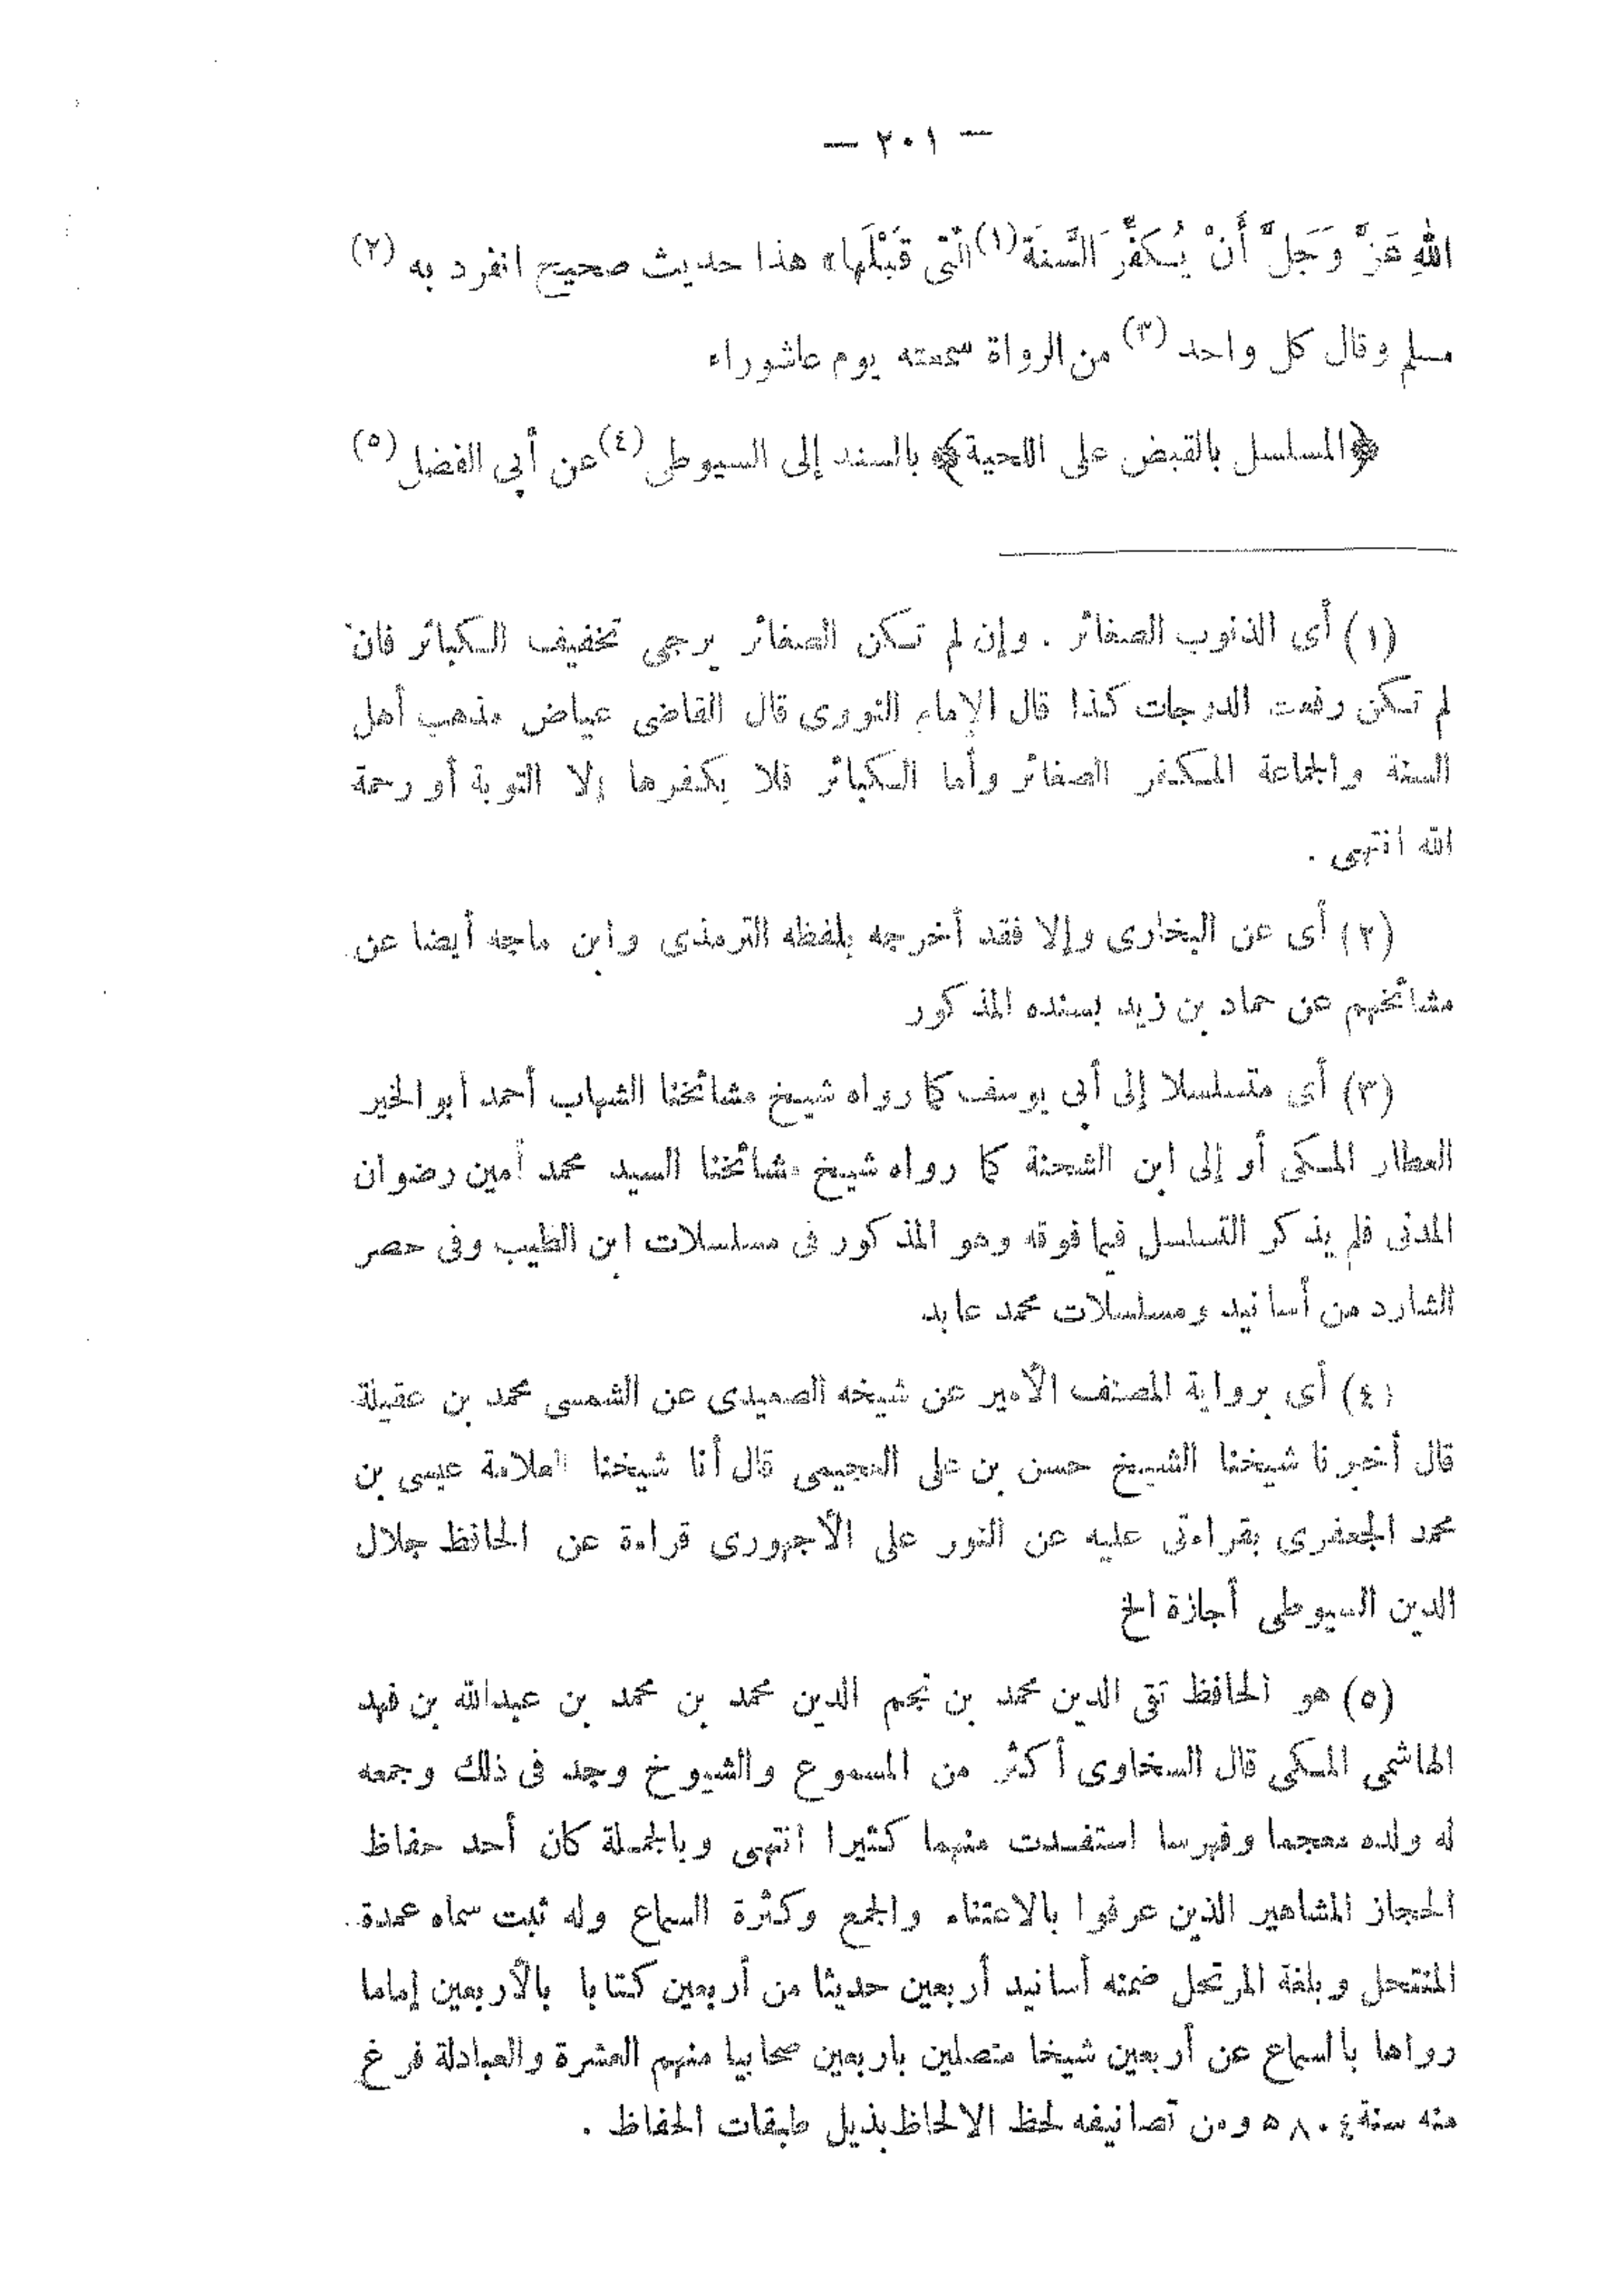 — ٢٠١ —
اللهِ عَزَّ وَجَلَّ أَنْ يُكَفِّرَ السَّنَةَ (١) الَّتِى قَبْلَهَا» هذا حديث صحيح انفرد به (٢)
مسلم وقال كل واحد (٣) من الرواة سمعته يوم عاشوراء
﴿المسلسل بالقبض على اللحية﴾ بالسند إلى السيوطى (٤) عن أبى الفضل (٥)
(١) أى الذنوب الصغائر . وإن لم تكن الصغائر يرجى تخفيف الكبائر فان
لم تكن رفعت الدرجات كذا قال الإمام النووى قال القاضى عياض مذهب أهل
السنة والجماعة المكفر الصغائر وأما الكبائر فلا يكفرها إلا التوبة أو رحمة
الله انتهى .
(٢) أى عن البخارى وإلا فقد أخرجه بلفظه الترمذى وابن ماجه أيضا عن
مشائخهم عن حماد بن زيد بسنده المذكور
(٣) أى متسلسلا إلى أبى يوسف كما رواه شيخ مشائخنا الشهاب أحمد أبو الخير
العطار المكى أو إلى ابن الشحنة كما رواه شيخ مشائخنا السيد محمد أمين رضوان
المدنى فلم يذكر التسلسل فيما فوقه وهو المذكور فى مسلسلات ابن الطيب وفى حصر
الشارد من أسانيد ومسلسلات محمد عابد
(٤) أى برواية المصنف الأمير عن شيخه الصعيدى عن الشمسى محمد بن عقيلة
قال أخبرنا شيخنا الشيخ حسن بن على العجيمى قال أنا شيخنا العلامة عيسى بن
محمد الجعفرى بقراءتى عليه عن النور على الأجهورى قراءة عن الحافظ جلال
الدين السيوطى أجازة الخ
(٥) هو الحافظ تقى الدين محمد بن نجم الدين محمد بن محمد بن عبدالله بن فهد
الهاشمى المكى قال السخاوى أكثر من المسموع والشيوخ وجد فى ذلك وجمعه
له ولده معجما وفهرسا استفدت منهما كثيرا انتهى وبالجملة كان أحد حفاظ
الحجاز المشاهير الذين عرفوا بالاعتناء والجمع وكثرة السماع وله ثبت سماه عمدة
المنتحل وبلغة المرتحل ضمنه أسانيد أربعين حديثا من أربعين كتابا بالأربعين إماما
رواها بالسماع عن أربعين شيخا متصلين باربعين صحابيا منهم العشرة والعبادلة فرغ
منه سنة ٨٠٤ ه ومن تصانيفه لحظ الالحاظ بذيل طبقات الحفاظ .